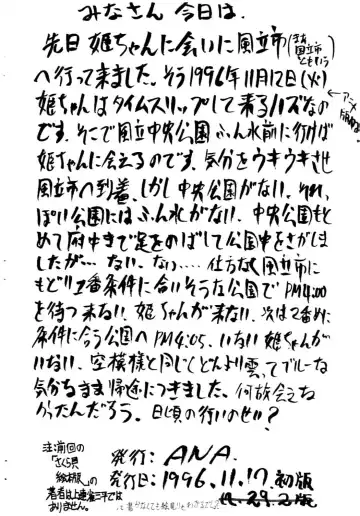 みなさん 今日は.
先日 姫ちゃんに会いに風立市(またの名国立市ともいう)
へ行って来ました。そう1996年11月12日(火)
姫ちゃんはタイムスリップして来るハズなの ←アニメ版では
です. そこで風立中央公園ふん水前に行けば
姫ちゃんに会えるのです. 気分をウキウキさせ
風立市へ到着、しかし中央公園がない. それっ
ぽい公園にはふん水がない、中央公園もと
めて府中まで足をのばして公園中をさがしま
したが… ない、ない…. 仕方なく風立市に
もどり1番条件に合いそうな公園でPM4:00
を待つ 来ない、姫ちゃんが来ない. 次は2番めに
条件に合う公園へPM4:05. いない 姫ちゃんが
いない. 空模様と同じくどんより雲ってブルーな
気分のまま帰途につきました。何故会えな
かったんだろう. 日頃の行いのせい?
注:前回の
「さくら貝絵本版」の
著者は上連雀三平では
ありません。
発行: ANA.
発行日: 1996.11.17.初版